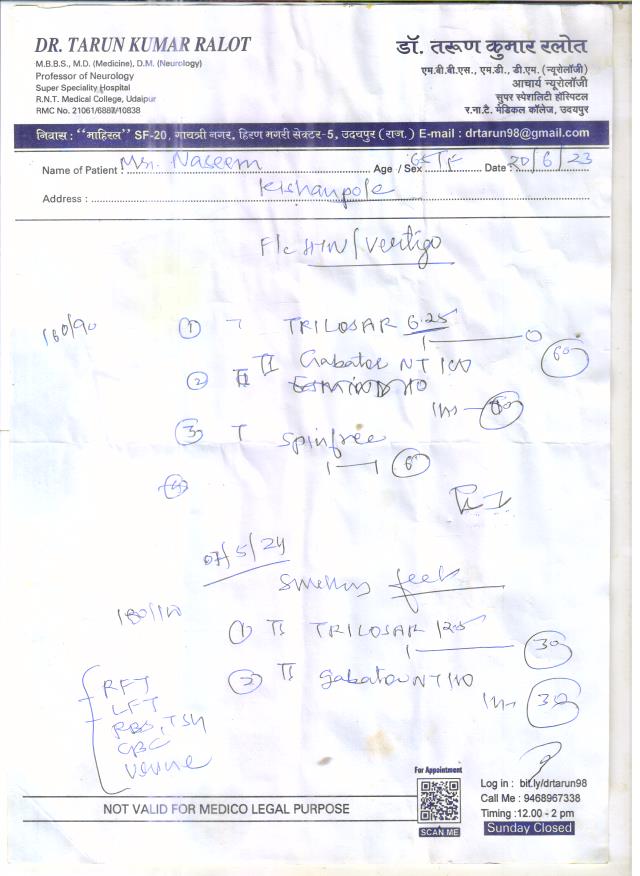 DR. TARUN KUMAR RALOT
M.B.B.S., M.D. (Medicine), D.M. (Neurology)
Professor of Neurology
Super Speciality Hospital
R.N.T. Medical College, Udaipur
RMC No. 21061/6887/10838
डॉ. तरूण कुमार रलोत
एम.बी.बी.एस., एम.डी., डी.एम. (न्यूरोलॉजी)
आचार्य न्यूरोलॉजी
सुपर स्पेशलिटी हॉस्पिटल
र.ना.टै. मेडिकल कॉलेज, उदयपुर
निवास : "माहिरल" SF-20, गायत्री नगर, हिरण मगरी सेक्टर-5, उदयपुर (राज.) E-mail : drtarun98@gmail.com
Name of Patient : Mrs. Naseem Age / Sex 65/F Date : 20/6/23
Address : Kishanpole
F/c HTN/Vertigo
160/90
① T TRILOSAR 6.25
1 — 0 60
② II Gabator NT 100
③ T Spinfree
1—1 60
④
07/5/24
Swelling feet
180/110
① Tb TRILOSAR 12.5
1 — 30
② Tb Gabator NT 100
1hs 30
RFT
LFT
RBS, TSH
CBC
Urine
NOT VALID FOR MEDICO LEGAL PURPOSE
For Appointment
SCAN ME
Log in : bit.ly/drtarun98
Call Me : 9468967338
Timing :12.00 - 2 pm
Sunday Closed